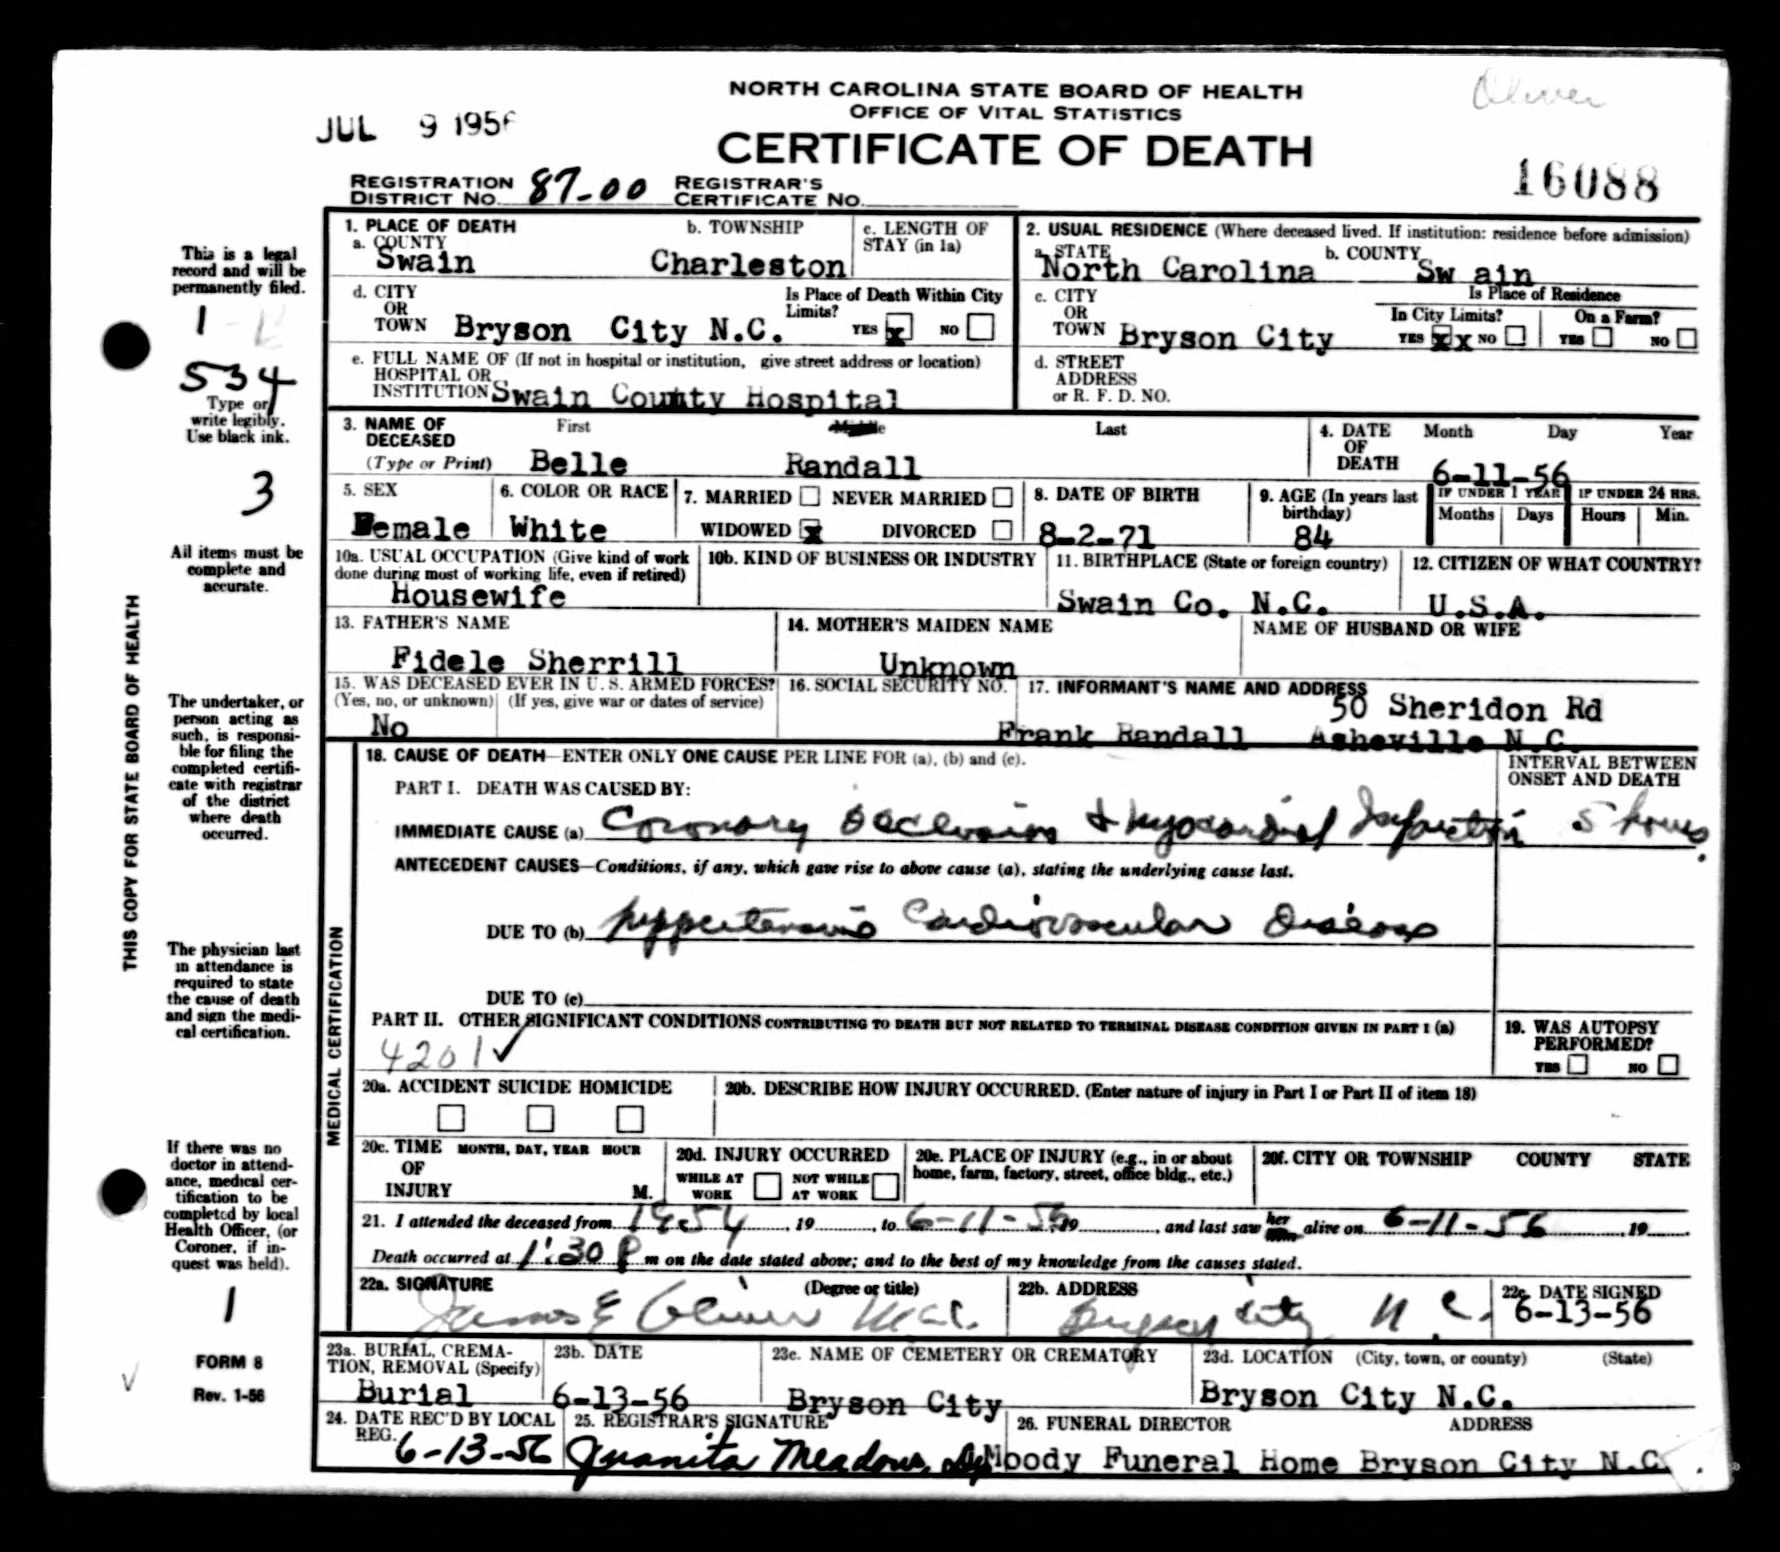 Oliver
NORTH CAROLINA STATE BOARD OF HEALTH
OFFICE OF VITAL STATISTICS
CERTIFICATE OF DEATH
JUL 9 1956
16088
REGISTRATION DISTRICT NO. 87-00 REGISTRAR'S CERTIFICATE NO.
THIS COPY FOR STATE BOARD OF HEALTH
This is a legal
record and will be
permanently filed.
1
534
Type or
write legibly.
Use black ink.
3
All items must be
complete and
accurate.
The undertaker, or
person acting as
such, is responsi-
ble for filing the
completed certifi-
cate with registrar
of the district
where death
occurred.
The physician last
in attendance is
required to state
the cause of death
and sign the medi-
cal certification.
If there was no
doctor in attend-
ance, medical cer-
tification to be
completed by local
Health Officer, (or
Coroner, if in-
quest was held).
1
FORM 8
Rev. 1-56
1. PLACE OF DEATH
a. COUNTY Swain
b. TOWNSHIP Charleston
c. LENGTH OF STAY (in 1a)
2. USUAL RESIDENCE (Where deceased lived. If institution: residence before admission)
a. STATE North Carolina
b. COUNTY Sw ain
d. CITY OR TOWN Bryson City N.C.
Is Place of Death Within City Limits? YES x NO
c. CITY OR TOWN Bryson City
Is Place of Residence
In City Limits? YES x x NO
On a Farm? YES NO
e. FULL NAME OF (If not in hospital or institution, give street address or location)
HOSPITAL OR
INSTITUTION Swain County Hospital
d. STREET
ADDRESS
or R. F. D. NO.
3. NAME OF DECEASED (Type or Print) First Middle Last
Belle Randall
4. DATE OF DEATH Month Day Year
6-11-56
5. SEX Female
6. COLOR OR RACE White
7. MARRIED NEVER MARRIED
WIDOWED x DIVORCED
8. DATE OF BIRTH 8-2-71
9. AGE (In years last birthday) 84
IF UNDER 1 YEAR Months Days
IF UNDER 24 HRS. Hours Min.
10a. USUAL OCCUPATION (Give kind of work done during most of working life, even if retired)
Housewife
10b. KIND OF BUSINESS OR INDUSTRY
11. BIRTHPLACE (State or foreign country)
Swain Co. N.C.
12. CITIZEN OF WHAT COUNTRY?
U.S.A.
13. FATHER'S NAME
Fidele Sherrill
14. MOTHER'S MAIDEN NAME
Unknown
NAME OF HUSBAND OR WIFE
15. WAS DECEASED EVER IN U. S. ARMED FORCES?
(Yes, no, or unknown) (If yes, give war or dates of service)
No
16. SOCIAL SECURITY NO.
17. INFORMANT'S NAME AND ADDRESS
50 Sheridon Rd
Frank Randall Asheville N.C.
MEDICAL CERTIFICATION
18. CAUSE OF DEATH—ENTER ONLY ONE CAUSE PER LINE FOR (a), (b) and (c).
INTERVAL BETWEEN ONSET AND DEATH
PART I. DEATH WAS CAUSED BY:
IMMEDIATE CAUSE (a) Coronary Occlusion & Myocardial Infarction 5 hours.
ANTECEDENT CAUSES—Conditions, if any, which gave rise to above cause (a), stating the underlying cause last.
DUE TO (b) Hypertensive Cardiovascular Disease
DUE TO (c)
PART II. OTHER SIGNIFICANT CONDITIONS CONTRIBUTING TO DEATH BUT NOT RELATED TO TERMINAL DISEASE CONDITION GIVEN IN PART I (a)
4201 ✓
19. WAS AUTOPSY PERFORMED?
YES NO
20a. ACCIDENT SUICIDE HOMICIDE
20b. DESCRIBE HOW INJURY OCCURRED. (Enter nature of injury in Part I or Part II of item 18)
20c. TIME OF INJURY MONTH, DAY, YEAR HOUR M.
20d. INJURY OCCURRED
WHILE AT WORK NOT WHILE AT WORK
20e. PLACE OF INJURY (e.g., in or about home, farm, factory, street, office bldg., etc.)
20f. CITY OR TOWNSHIP COUNTY STATE
21. I attended the deceased from 1954, 19, to 6-11-56, 19, and last saw her alive on 6-11-56 19
Death occurred at 1:30 P m on the date stated above; and to the best of my knowledge from the causes stated.
22a. SIGNATURE (Degree or title)
James E Oliver M.D.
22b. ADDRESS
Bryson City N.C.
22c. DATE SIGNED
6-13-56
23a. BURIAL, CREMA-
TION, REMOVAL (Specify)
Burial
23b. DATE
6-13-56
23c. NAME OF CEMETERY OR CREMATORY
Bryson City
23d. LOCATION (City, town, or county) (State)
Bryson City N.C.
24. DATE REC'D BY LOCAL REG.
6-13-56
25. REGISTRAR'S SIGNATURE
Juanita Meadows
26. FUNERAL DIRECTOR ADDRESS
Moody Funeral Home Bryson City N.C.